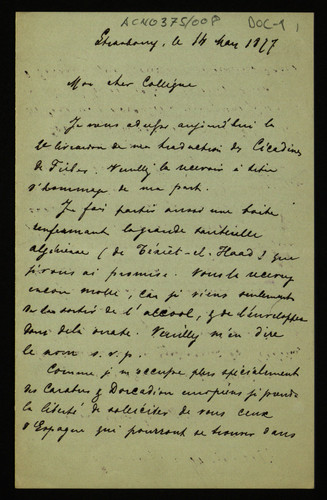 ACN0375/008 DOC-1
Strasbourg, le 14 Mars 1877
Mon cher Collègue
Je vous adresse aujourd'hui la
2e livraison de ma traduction des Cicadines
de Fieber. Veuillez la recevoir à titre
d'hommage de ma part.
Je fais partir aussi une boite
renfermant la grande tarentelle
algérienne (de Téniet-el-Haad) que
je vous ai promise. Vous la recevrez
encore molle, car je viens seulement
de la sortir de l'alcool, & de l'envelopper
dans de la ouate. Veuillez m'en dire
le nom s.v.p.
Comme je m'occupe plus spécialement
des Carabus & Dorcadion européens je prends
la liberté de solliciter de vous ceux
d'Espagne qui pourront se trouver dans